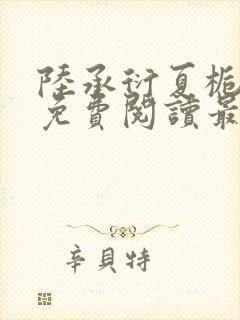 陸承衍夏梔
免費閱讀最
辛貝特